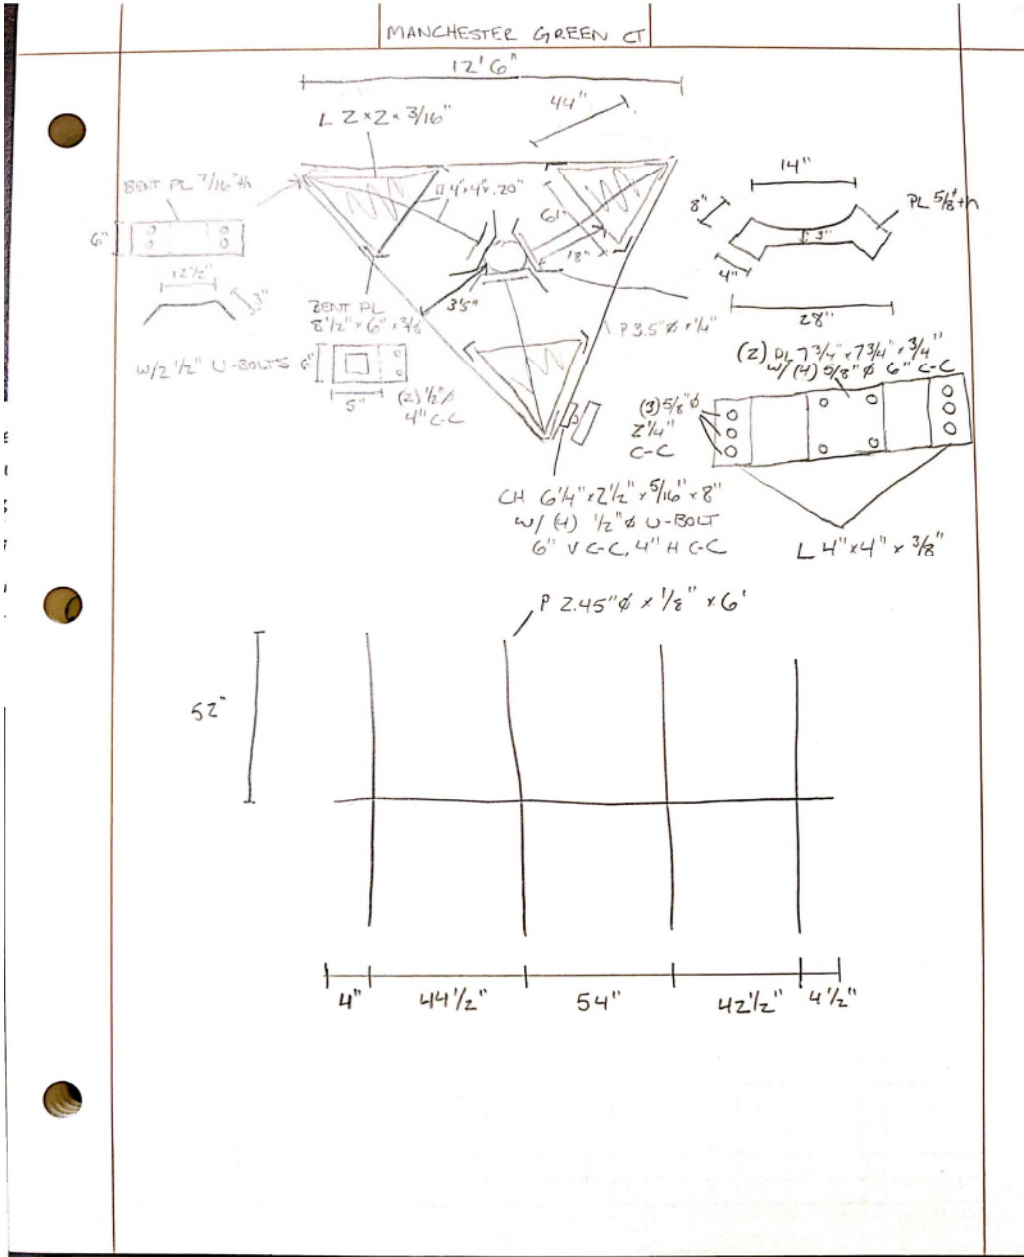 MANCHESTER GREEN CT
12' 6"
44"
L 2 x 2 x 3/16"
BENT PL 3/16" th
6"
12 1/2"
3"
4" x 4" x .20"
6'
18"
3'5"
BENT PL
8 1/2" x 6" x 3/8
W/2 1/2" U-BOLTS
6"
5"
(2) 1/2" Ø
4" C-C
P 3.5" Ø x 1/4"
14"
8"
PL 5/8" th
3"
4"
28"
(2) PL 7 3/4" x 7 3/4" x 3/4"
W/ (4) 5/8" Ø 6" C-C
(3) 5/8" Ø
2 1/4"
C-C
L 4" x 4" x 3/8"
CH 6 1/4" x 2 1/2" x 5/16" x 8"
W/ (4) 1/2" Ø U-BOLT
6" V C-C, 4" H C-C
P 2.45" Ø x 1/8" x 6'
52"
4"
44 1/2"
54"
42 1/2"
4 1/2"